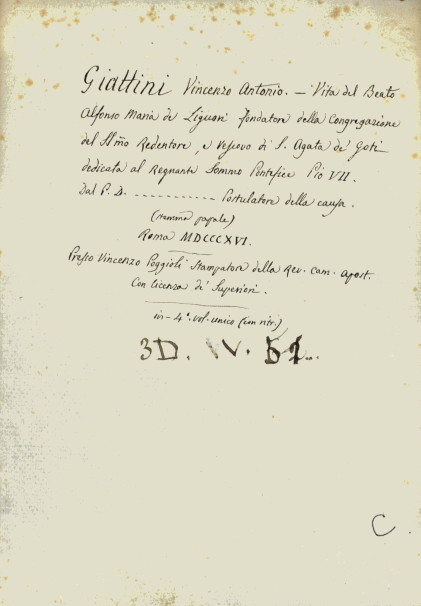 Giattini Vincenzo Antonio. — Vita del Beato
Alfonso Maria de Liguori fondatore della Congregazione
del SSmo Redentore, e vescovo di S. Agata de' Goti
dedicata al Regnante Sommo Pontefice Pio VII.
Dal P. D. ----------- Postulatore della causa.
(stemma papale)
Roma MDCCCXVI.
Presso Vincenzo Poggioli Stampatore della Rev. Cam. Apost.
Con licenza de' Superiori.
in-4°. vol. unico (con ritr.)
3D. IV.
C.